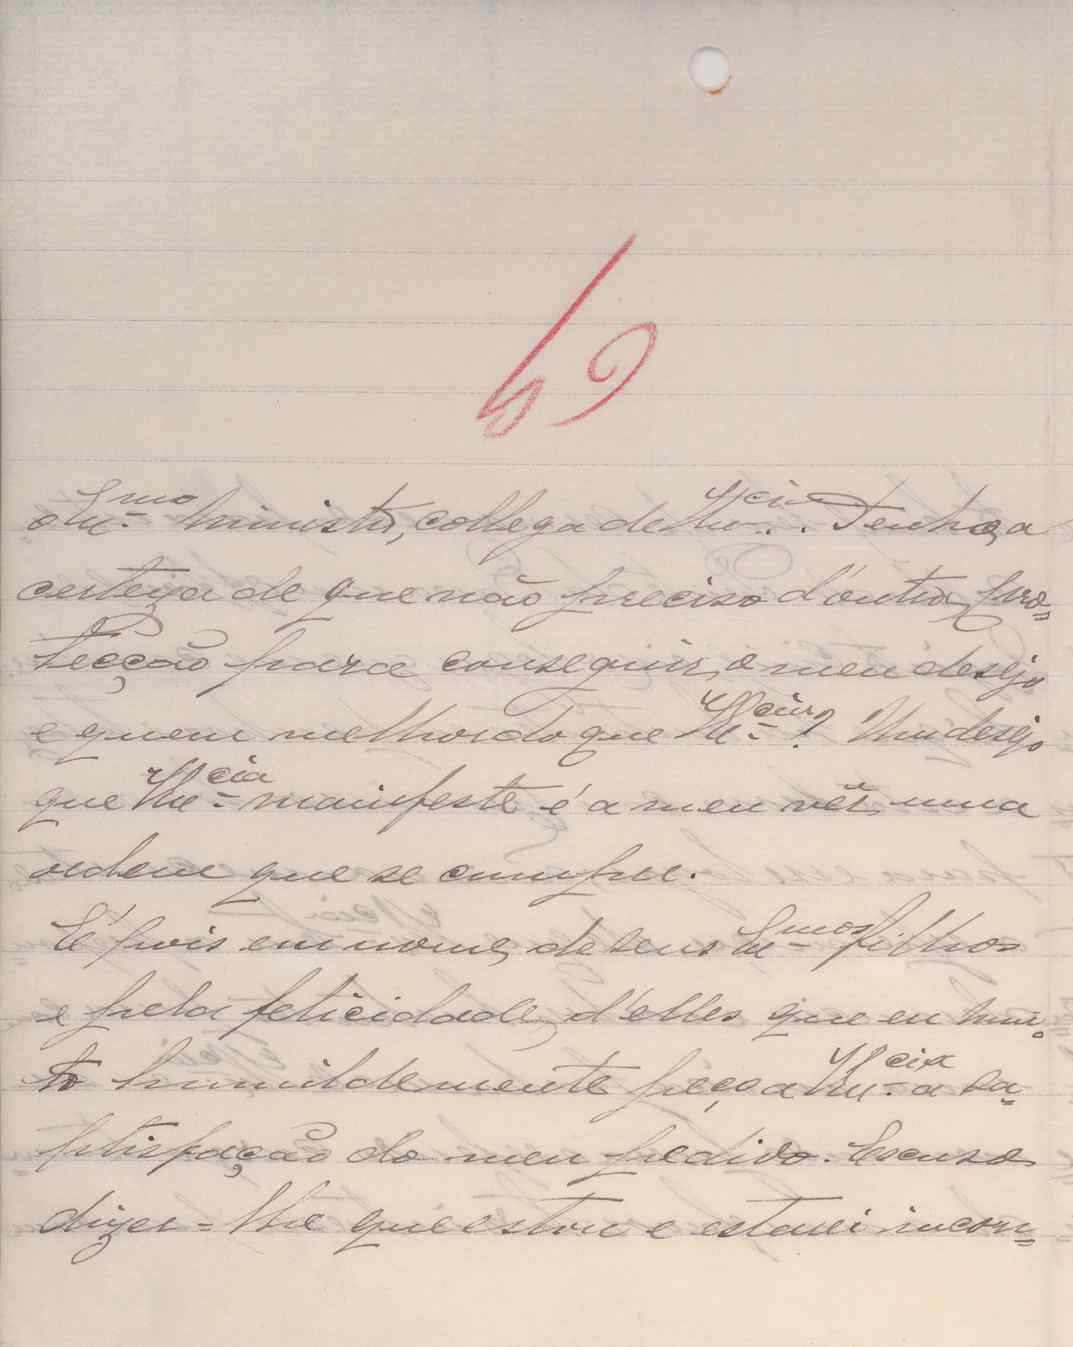 o Exmo Ministro, collega de V. Excia. Tenho a
certeza de que não preciso d'outra pro=
tecção para conseguir o meu desejo
e quem melhor do que V. Excia? Um desejo
que V. Excia manifeste é a meu vêr uma
ordem que se cumpre.
É pois em nome de seus Exmos filhos
e pela felicidade d'elles que eu mui
to humildemente peço a V. Excia a sa=
ptisfação do meu pedido. Escuso
dizer=lhe que estou e estarei incon=